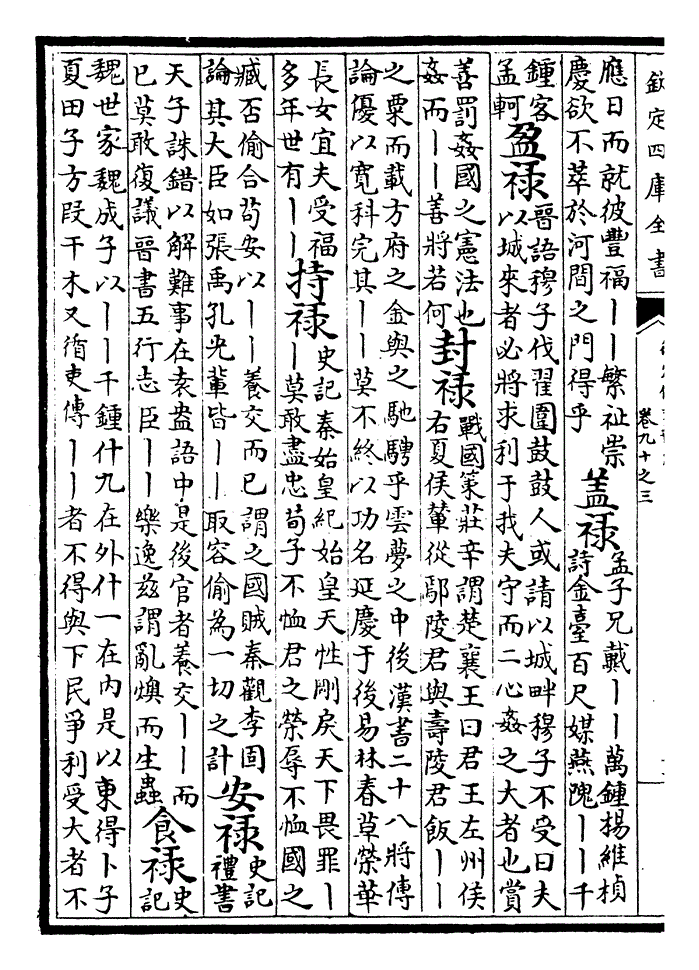 欽定四庫全書
卷九十之三
應日而就彼豐福丨丨繁祉崇
慶欲不萃於河間之門得乎
盖禄
孟子兄戴丨丨萬鍾楊維楨
詩金臺百尺媒燕隗丨丨千
鍾客
孟軻
盈禄
晉語穆子伐翟圍鼓鼓人或請以城畔穆子不受曰夫
以城來者必將求利于我夫守而二心姦之大者也賞
善罰姦國之憲法也
姦而丨丨善將若何
封禄
戰國策莊辛謂楚襄王曰君王左州侯
右夏侯輦從鄢陵君與壽陵君飯丨丨
之粟而載方府之金與之馳騁乎雲夢之中後漢書二十八將傳
論優以寬科完其丨丨莫不終以功名延慶于後易林春草榮華
長女宜夫受福
多年世有丨丨
持禄
史記秦始皇紀始皇天性剛戾天下畏罪丨
丨莫敢盡忠荀子不恤君之榮辱不恤國之
臧否偷合苟安以丨丨養交而已謂之國賊秦觀李固
論其大臣如張禹孔光輩皆丨丨取容偷為一切之計
安禄
史記
禮書
天子誅錯以解難事在袁盎語中是後官者養交丨丨而
已莫敢復議晉書五行志臣丨丨樂逸茲謂亂燠而生蟲
食禄
史
記
魏世家魏成子以丨丨千鍾什九在外什一在内是以東得卜子
夏田子方段干木又循吏傳丨丨者不得與下民爭利受大者不